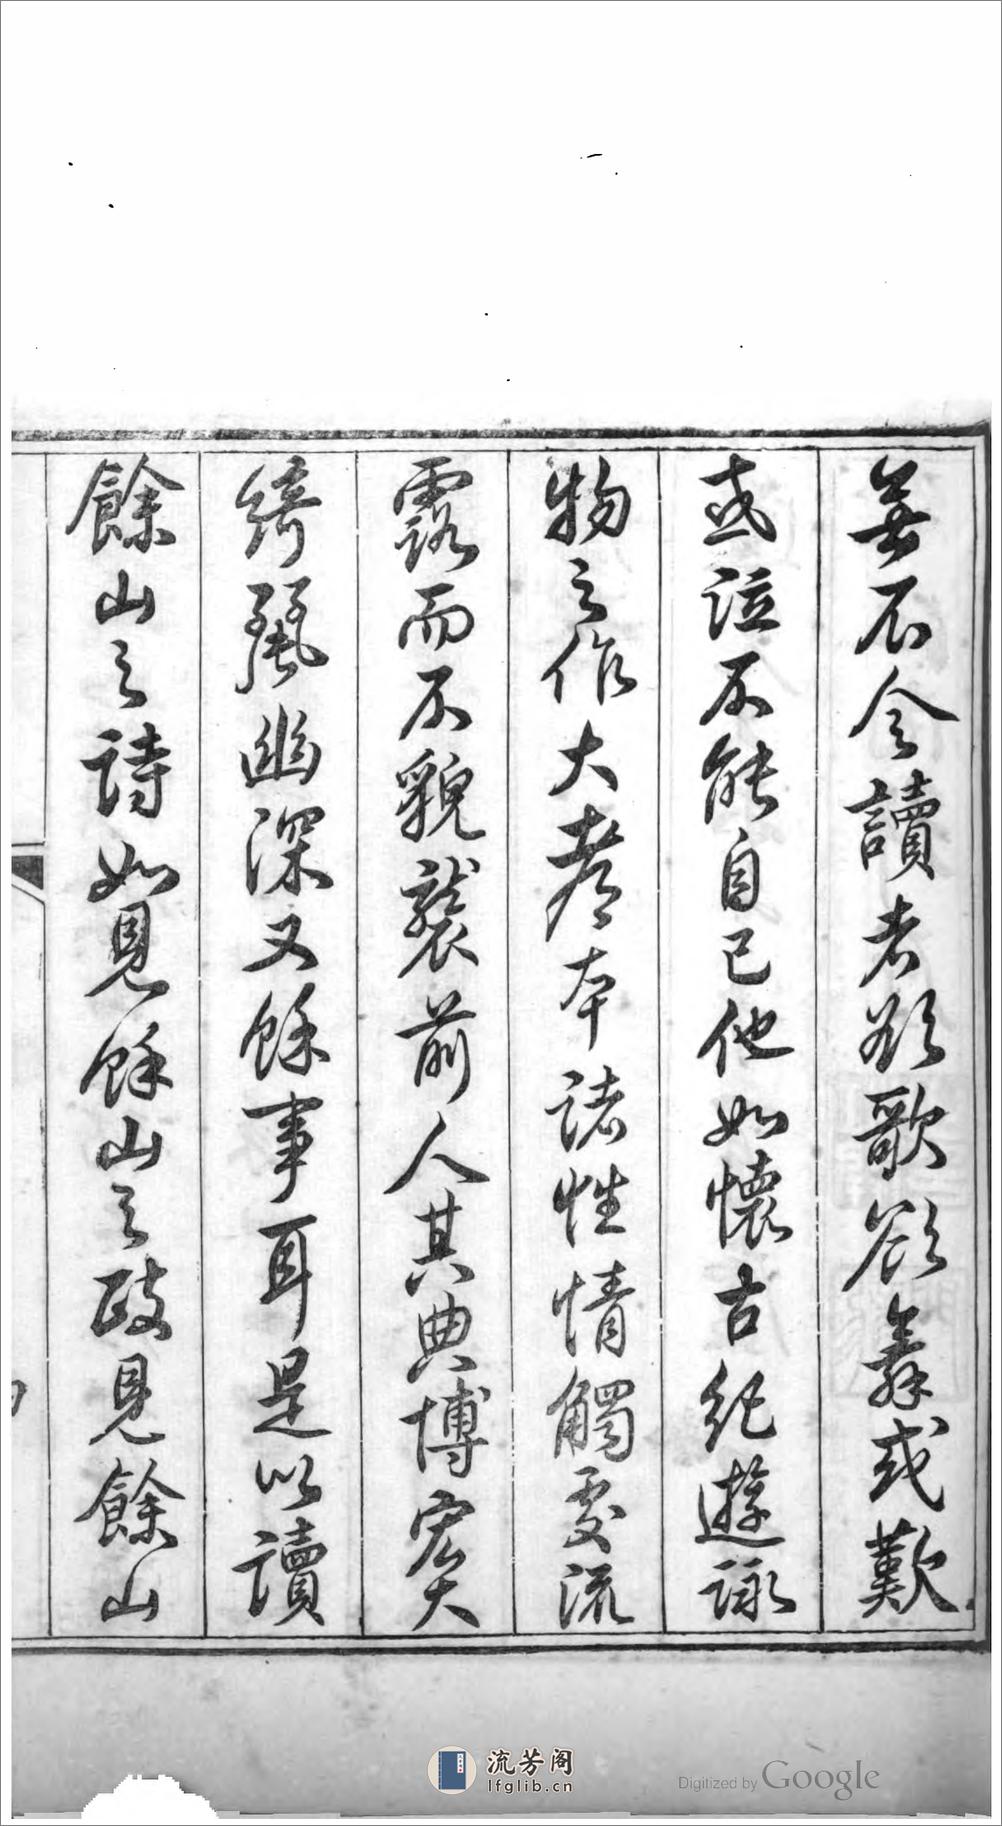 無不令讀者欲歌欲舞或歎
或泣不能自已他如懷古紀遊詠
物之作大率本諸性情觸處流
露而不貌襲前人其典博宏大
綺麗幽深又餘事耳是以讀
餘山之詩如覓餘山之政見餘山
流芳阁
lfglib.cn
Digitized by Google